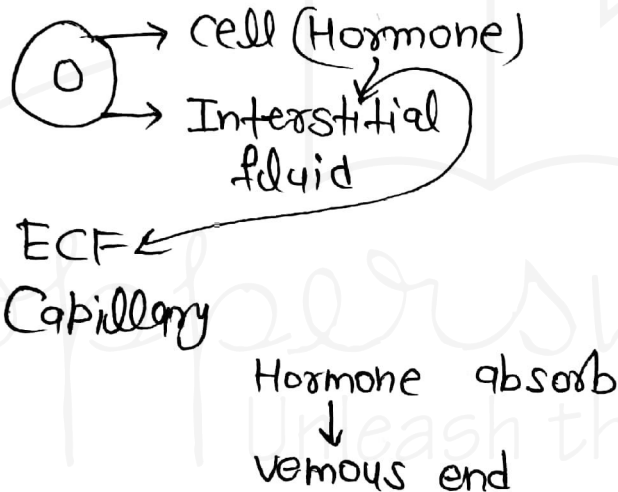 Cell (Hormone)
Interstitial
fluid
ECF
Capillary
Hormone absorb
Venous end